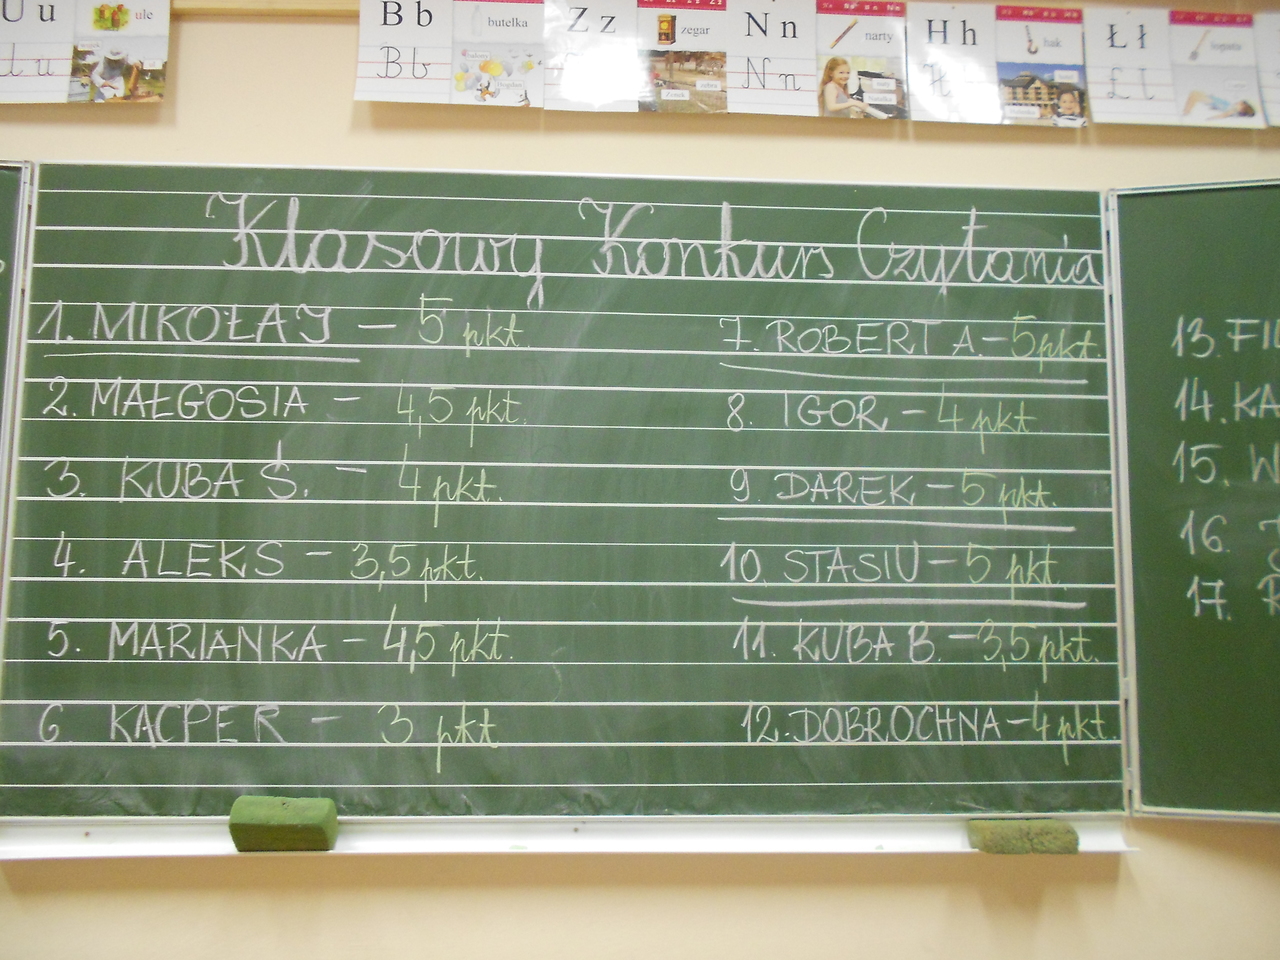 U u
ule
u u
B b
butelka
B b
Z z
zegar
N n
narty
N n
H h
hak
H
Ł ł
łopata
Ł ł
Klasowy Konkurs Czytania
1. MIKOŁAJ – 5 pkt.
2. MAŁGOSIA – 4,5 pkt.
3. KUBA Ś. – 4 pkt.
4. ALEKS – 3,5 pkt.
5. MARIANKA – 4,5 pkt.
6 KACPER – 3 pkt
7. ROBERT A. – 5 pkt.
8. IGOR – 4 pkt
9. DAREK – 5 pkt.
10. STASIU – 5 pkt.
11. KUBA B. – 3,5 pkt.
12. DOBROCHNA – 4 pkt.
13. FIL
14. KA
15. W
16.
17. R